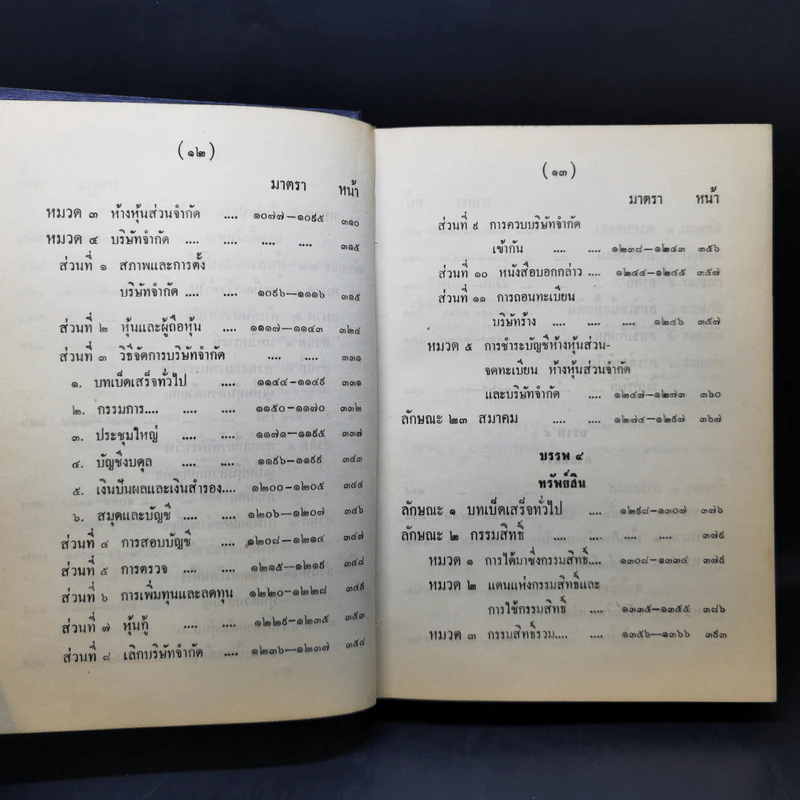 (๑๒)
มาตรา หน้า
หมวด ๓ ห้างหุ้นส่วนจำกัด .... ๑๐๗๗—๑๐๙๕ ๓๑๐
หมวด ๔ บริษัทจำกัด .... .... .... .... ๓๑๕
ส่วนที่ ๑ สภาพและการตั้ง
บริษัทจำกัด .... .... ๑๐๙๖—๑๑๑๖ ๓๑๕
ส่วนที่ ๒ หุ้นและผู้ถือหุ้น .... ๑๑๑๗—๑๑๔๓ ๓๒๔
ส่วนที่ ๓ วิธีจัดการบริษัทจำกัด .... .... ๓๓๑
๑. บทเบ็ดเสร็จทั่วไป .... ๑๑๔๔—๑๑๔๙ ๓๓๑
๒. กรรมการ.... .... .... ๑๑๕๐—๑๑๗๐ ๓๓๒
๓. ประชุมใหญ่ .... .... ๑๑๗๑—๑๑๙๕ ๓๓๗
๔. บัญชีงบดุล .... .... ๑๑๙๖—๑๑๙๙ ๓๔๓
๕. เงินปันผลและเงินสำรอง.... ๑๒๐๐—๑๒๐๕ ๓๔๔
๖. สมุดและบัญชี .... .... ๑๒๐๖—๑๒๐๗ ๓๔๖
ส่วนที่ ๔ การสอบบัญชี .... ๑๒๐๘—๑๒๑๔ ๓๔๗
ส่วนที่ ๕ การตรวจ .... .... ๑๒๑๕—๑๒๑๙ ๓๔๘
ส่วนที่ ๖ การเพิ่มทุนและลดทุน .... ๑๒๒๐—๑๒๒๘ ๓๔๙
ส่วนที่ ๗ หุ้นกู้ .... .... ๑๒๒๙—๑๒๓๕ ๓๕๓
ส่วนที่ ๘ เลิกบริษัทจำกัด .... ๑๒๓๖—๑๒๓๗ ๓๕๔
(๑๓)
มาตรา หน้า
ส่วนที่ ๙ การควบบริษัทจำกัด
เข้ากัน .... .... ๑๒๓๘—๑๒๔๓ ๓๕๖
ส่วนที่ ๑๐ หนังสือบอกกล่าว .... ๑๒๔๔—๑๒๔๕ ๓๕๗
ส่วนที่ ๑๑ การถอนทะเบียน
บริษัทร้าง .... .... .... ๑๒๔๖ ๓๕๗
หมวด ๕ การชำระบัญชีห้างหุ้นส่วน-
จดทะเบียน ห้างหุ้นส่วนจำกัด
และบริษัทจำกัด .... ๑๒๔๗—๑๒๗๓ ๓๖๐
ลักษณะ ๒๓ สมาคม .... .... ๑๒๗๔—๑๒๙๗ ๓๖๗
บรรพ ๔
ทรัพย์สิน
ลักษณะ ๑ บทเบ็ดเสร็จทั่วไป .... ๑๒๙๘—๑๓๐๗ ๓๗๖
ลักษณะ ๒ กรรมสิทธิ์ .... .... .... .... ๓๗๙
หมวด ๑ การได้มาซึ่งกรรมสิทธิ์.... ๑๓๐๘—๑๓๓๔ ๓๗๙
หมวด ๒ แดนแห่งกรรมสิทธิ์และ
การใช้กรรมสิทธิ์ .... ๑๓๓๕—๑๓๕๕ ๓๘๖
หมวด ๓ กรรมสิทธิ์รวม.... .... ๑๓๕๖—๑๓๖๖ ๓๙๓